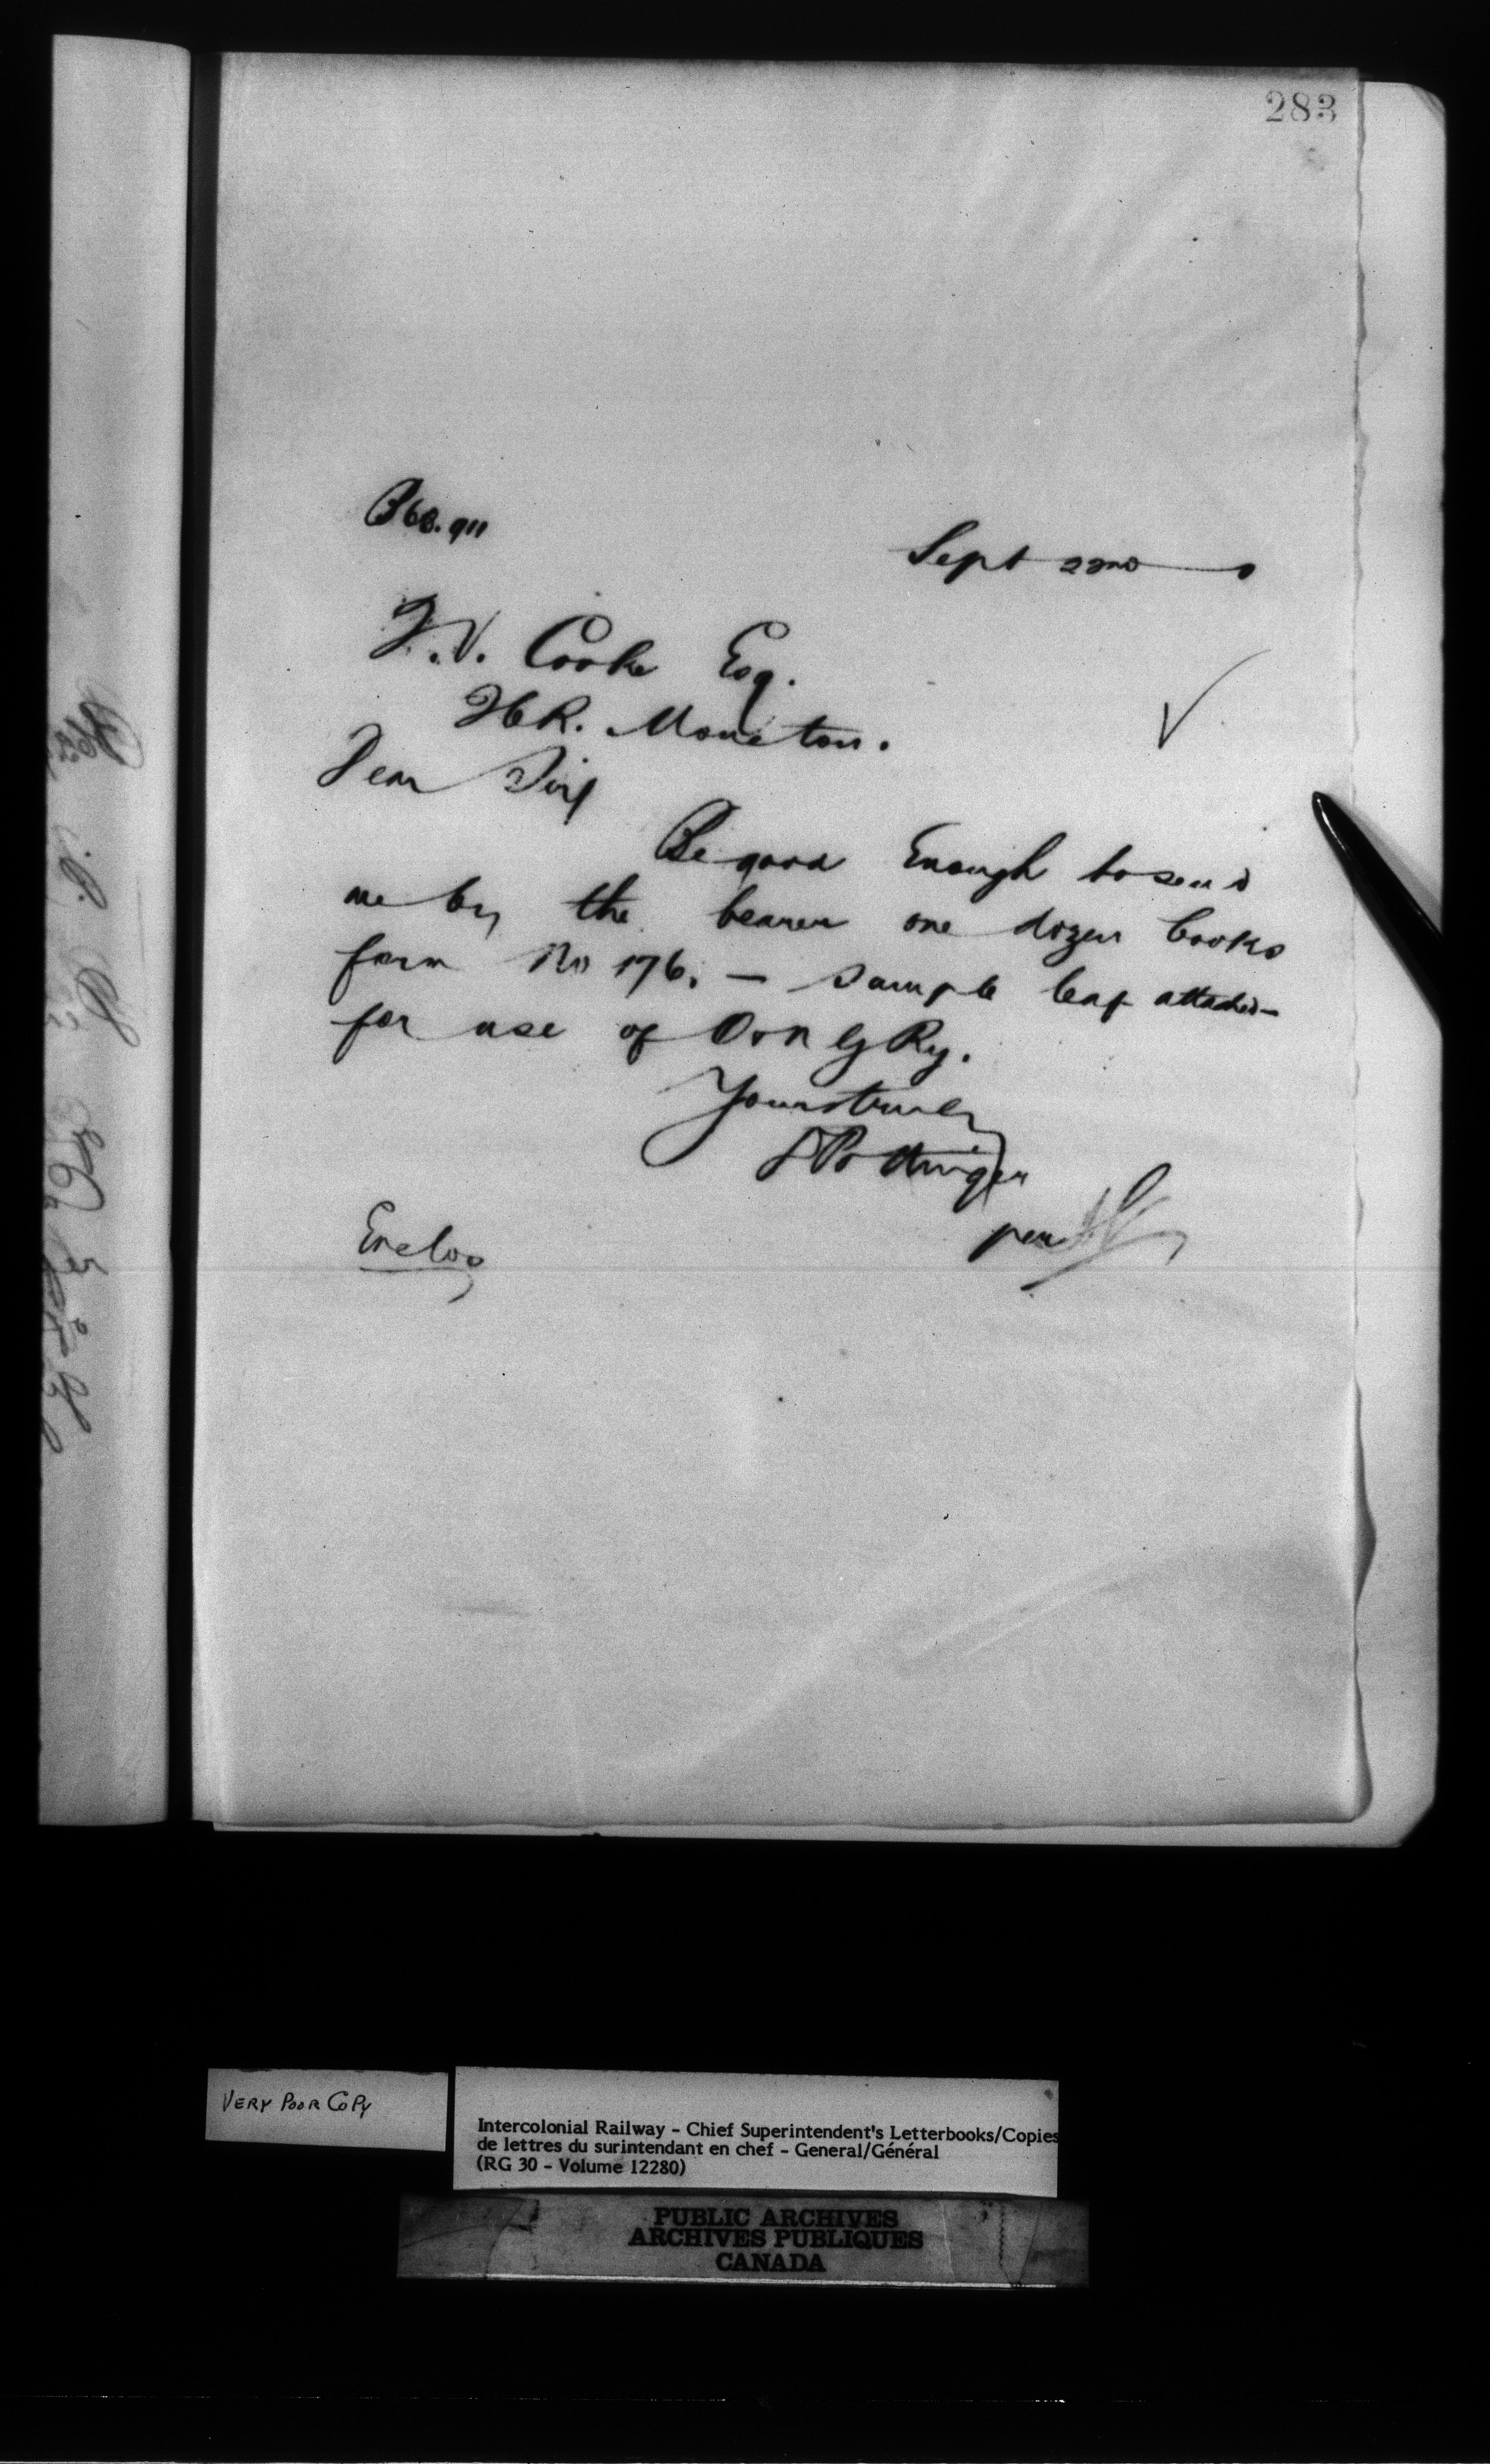 283
B 68.911
Sept 22nd
T.V. Cooke Esq.
Moncton.
Dear Sir
Be good Enough to send
me by the bearer one dozen books
form No 176. — Sample leaf attached—
for use of Ry.
Yours truly
D Pottinger
per
Enclos
VERY POOR COPY
Intercolonial Railway - Chief Superintendent's Letterbooks/Copies
de lettres du surintendant en chef - General/Général
(RG 30 - Volume 12280)
PUBLIC ARCHIVES
ARCHIVES PUBLIQUES
CANADA